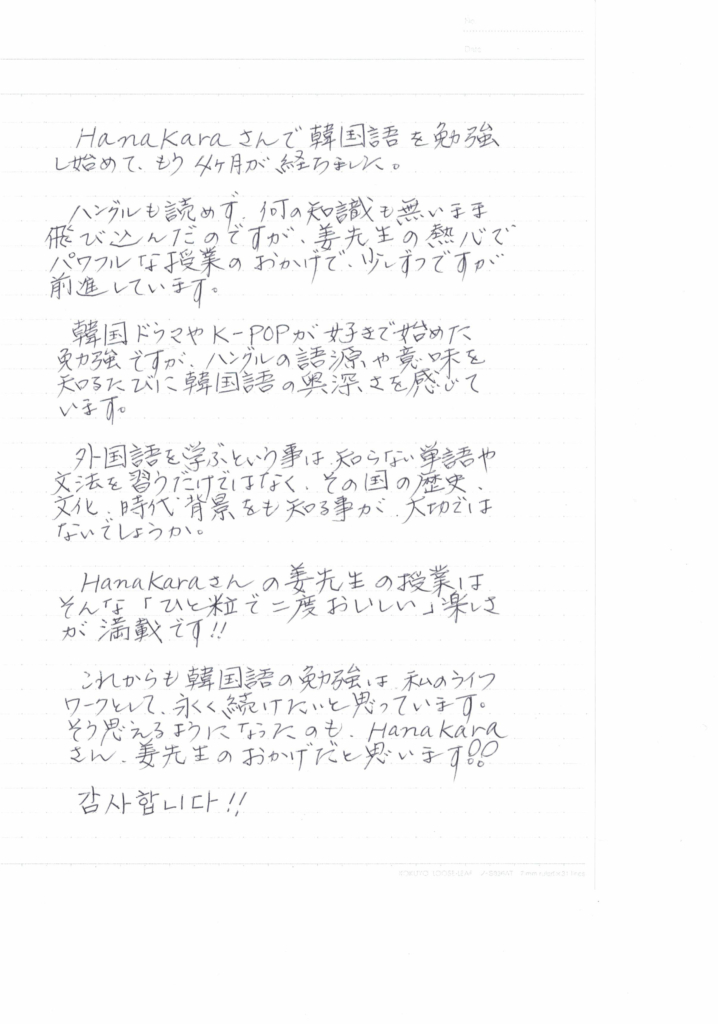 Hanakaraさんで韓国語を勉強
し始めて、もう4ヶ月が経ちました。
ハングルも読めず、何の知識も無いまま
飛び込んだのですが、姜先生の熱心で
パワフルな授業のおかげで、少しずつですが
前進しています。
韓国ドラマやK-POPが好きで始めた
勉強ですが、ハングルの語源や意味を
知るたびに韓国語の奥深さを感じて
います。
外国語を学ぶという事は、知らない単語や
文法を習うだけではなく、その国の歴史、
文化、時代背景をも知る事が、大切では
ないでしょうか。
Hanakaraさんの姜先生の授業は
そんな「ひと粒で二度おいしい」楽しさ
が満載です!!
これからも韓国語の勉強は、私のライフ
ワークとして、永く続けたいと思っています。
そう思えるようになったのも、Hanakara
さん、姜先生のおかげだと思います!!
감사합니다!!